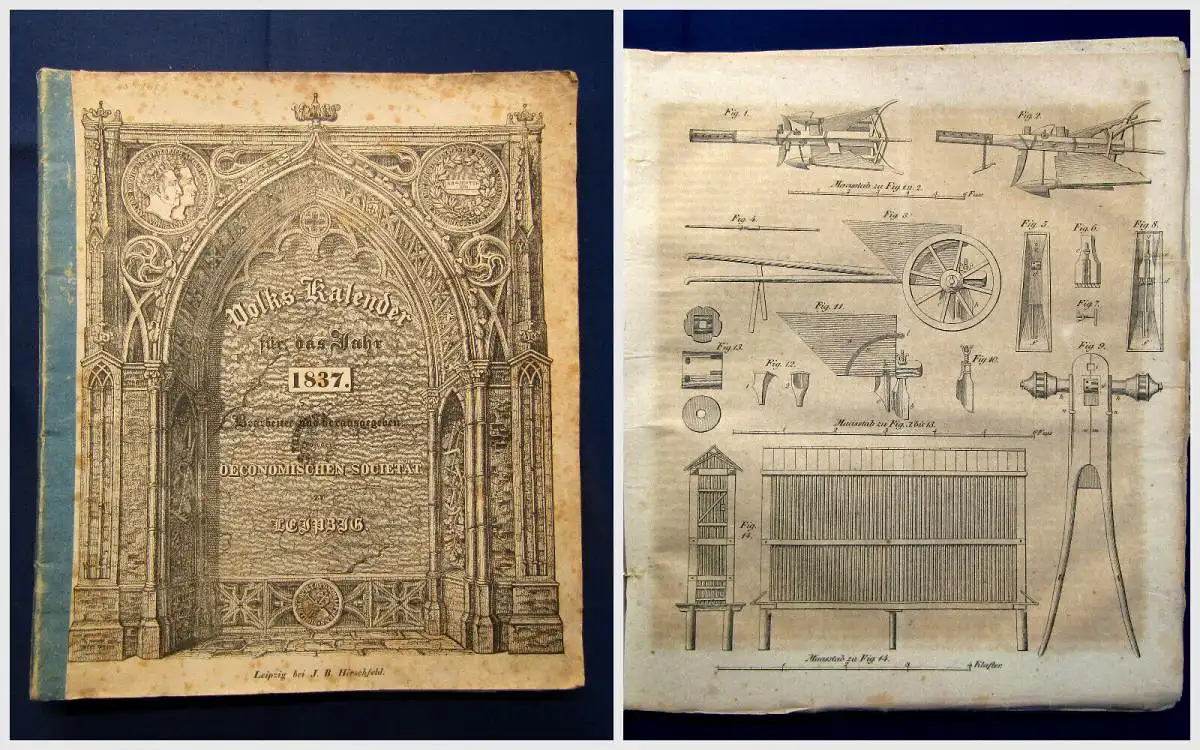 Volks Kalender
für das Jahr
1837.
Bearbeitet und herausgegeben
OECONOMISCHEN SOCIETÄT
zu
LEIPZIG.
Leipzig bei J. B. Hirschfeld.
Fig. 1.
Fig. 2.
Maasstab zu Fig. 1 u. 2.
Fuss
Fig. 4.
Fig. 3.
Fig. 5.
Fig. 6.
Fig. 8.
Fig. 7.
Fig. 11.
Fig. 13.
Fig. 12.
Fig. 10.
Fig. 9.
Maasstab zu Fig. 3 bis 13.
Fuss
Fig. 14.
Maasstab zu Fig. 14.
Klafter